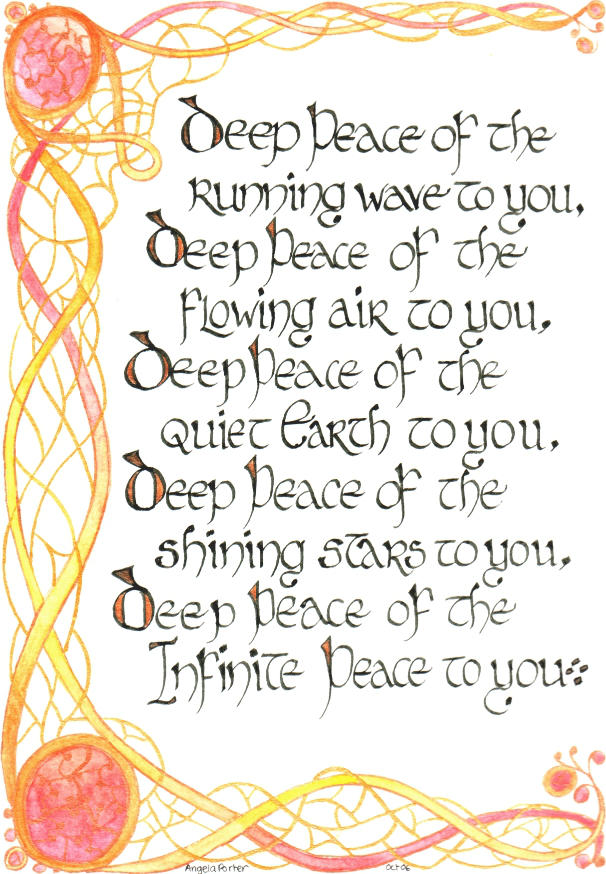 Deep Peace of the
Running wave to you,
Deep Peace of the
flowing air to you,
Deep Peace of the
quiet Earth to you,
Deep Peace of the
shining stars to you,
Deep Peace of the
Infinite Peace to you
Angela Porter Oct 06